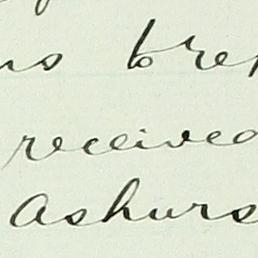 to re
received
Ashurs